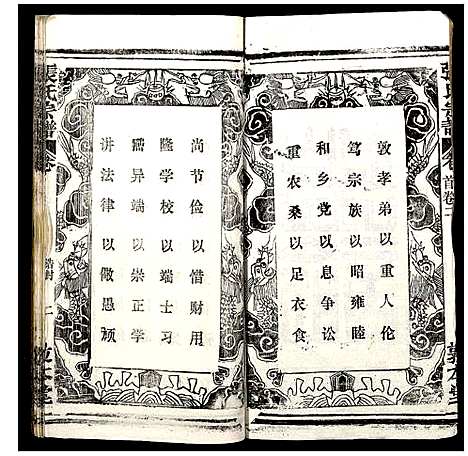 張氏宗譜
卷首卷二
敦本堂
敦孝弟以重人伦
笃宗族以昭雍睦
和乡党以息争讼
重农桑以足衣食
尚节俭以惜财用
隆学校以端士习
黜异端以崇正学
讲法律以儆愚顽
張氏宗譜
卷
誥封
敦本堂